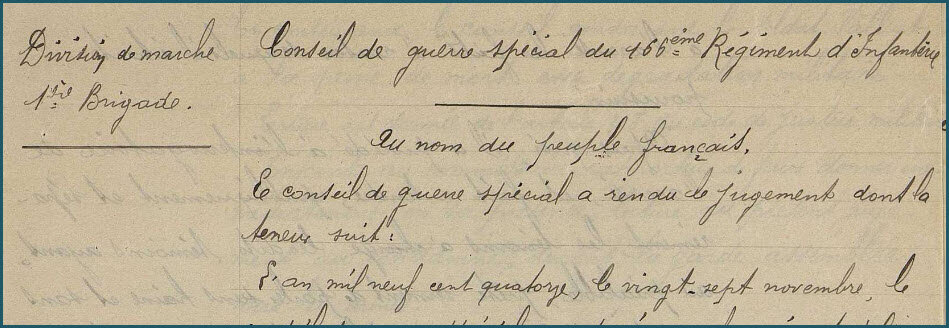 Division de marche
1ère Brigade.
Conseil de guerre spécial du 166ème Régiment d'Infanterie
Au nom du peuple français,
Le conseil de guerre spécial a rendu le jugement dont la
teneur suit:
L'an mil neuf cent quatorze, le vingt-sept novembre, le